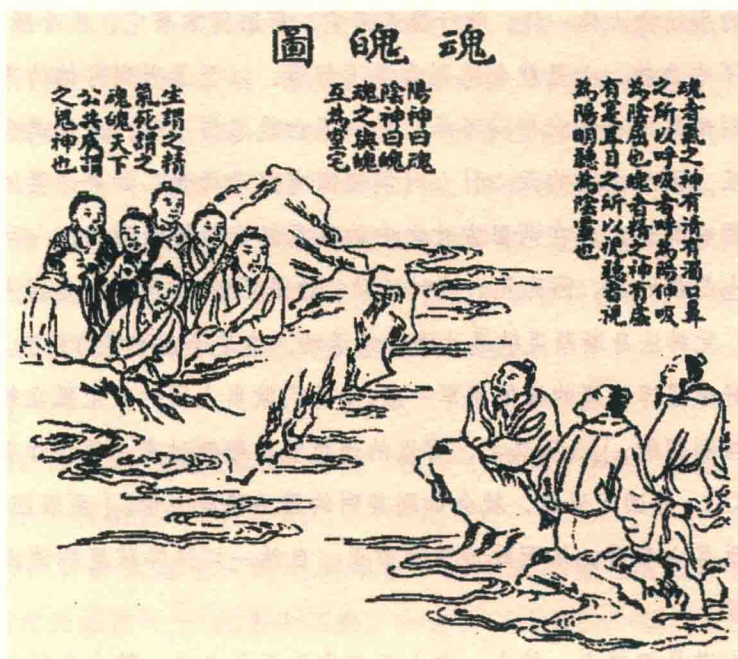 魂魄圖
魂者氣之神有清有濁口鼻
之所以呼吸者呼為陽伸吸
為陰屈也魄者精之神有虛
有寔耳目之所以視聽者視
為陽明聽為陰靈也
陽神曰魂
陰神曰魄
魂之與魄
互為室宅
生謂之精
氣死謂之
魂魄天下
公共底謂
之鬼神也